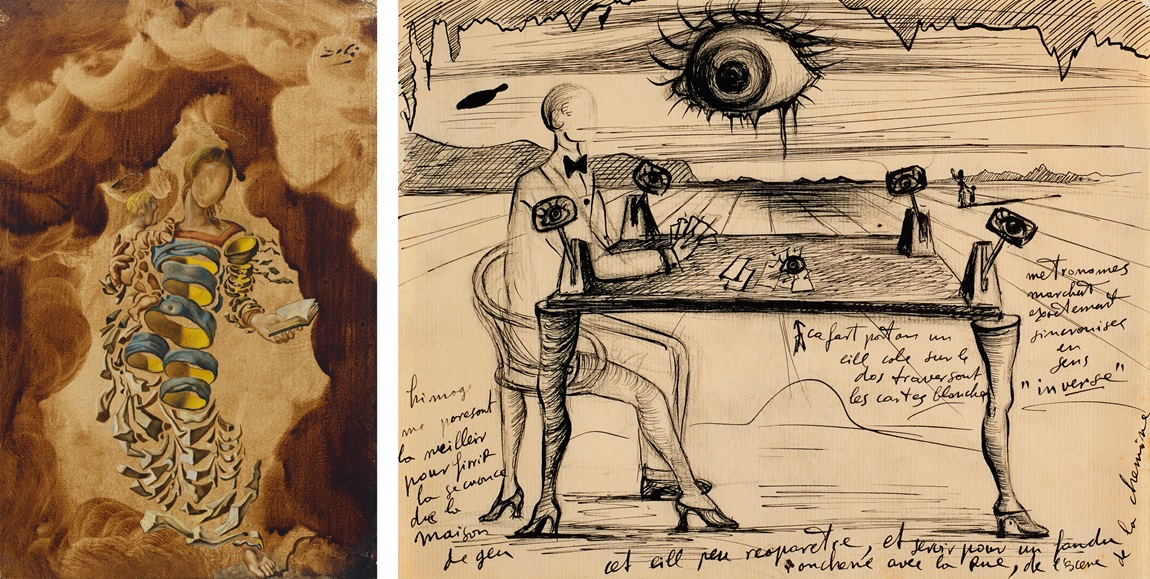 Dalí
metronomes
marchat
exactement
sincronises
en
sens
"inverse"
cafart portan un
eill cole sur le
dos traversont
les cartes blanche
himage
me paresont
la meilleir
pour finir
la
de la
maison
de geu
cet eill peu reaparetre, et servir pour un fandu
onchene avec la Rue, de l'escene
de la chemine